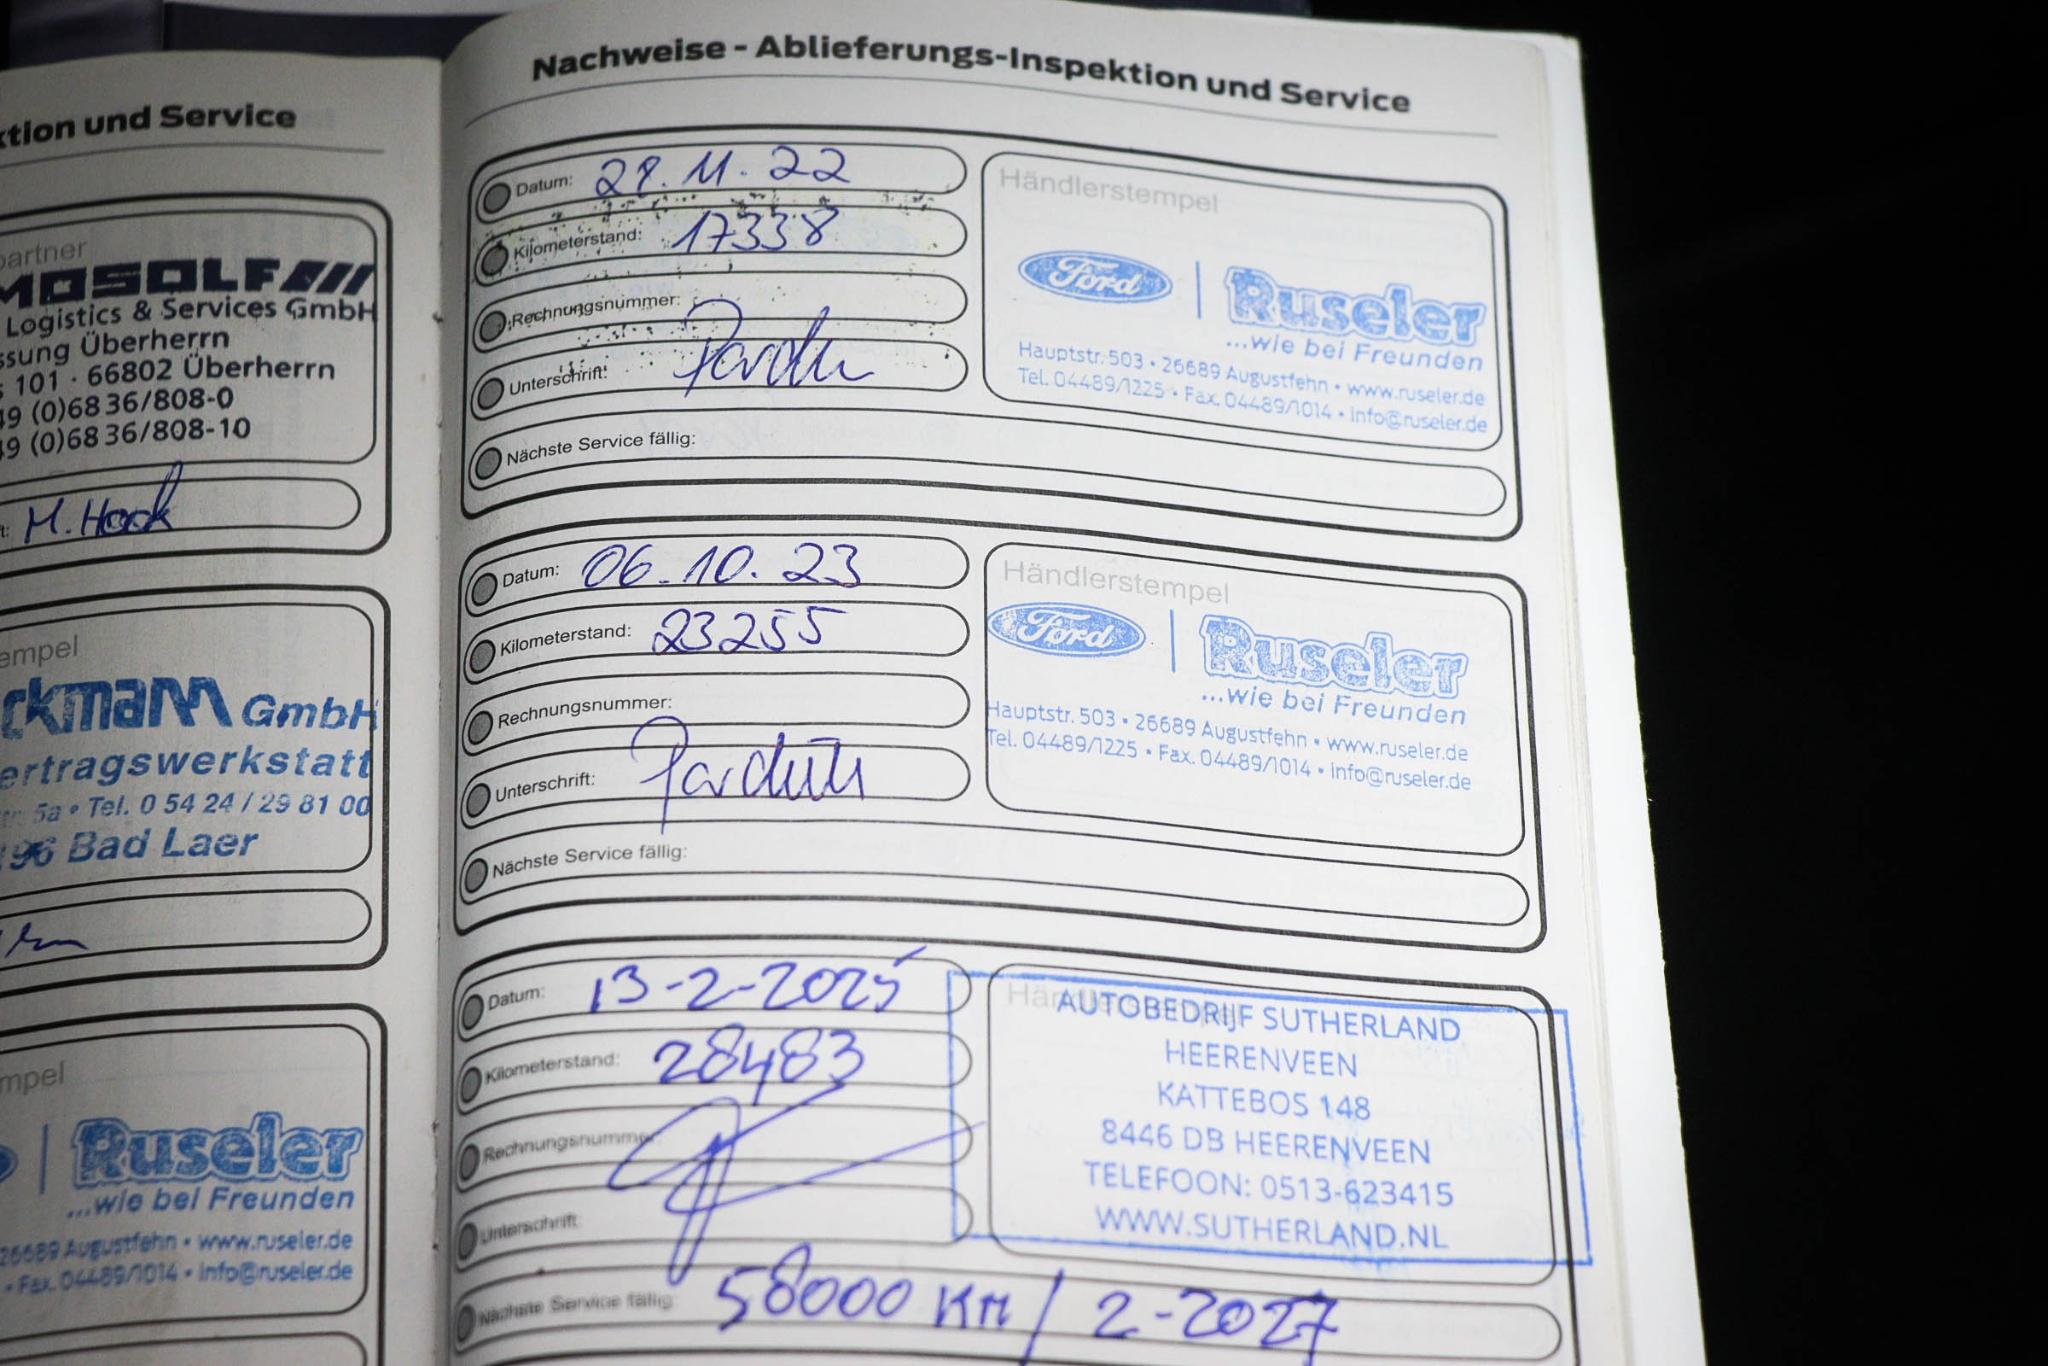 ktion und Service
partner
MOSOLF
Logistics & Services GmbH
ssung Überherrn
101 · 66802 Überherrn
49 (0)68 36/808-0
49 (0)68 36/808-10
M. Hock
empel
ckmann GmbH
ertragswerkstatt
5a • Tel. 0 54 24 / 29 81 00
196 Bad Laer
mpel
Ruseler
...wie bei Freunden
26689 Augustfehn • www.ruseler.de
• Fax. 04489/1014 • info@ruseler.de
Nachweise - Ablieferungs-Inspektion und Service
Datum: 28.11.22
Kilometerstand: 17338
Rechnungsnummer:
Unterschrift:
Nächste Service fällig:
Händlerstempel
Ford | Ruseler
...wie bei Freunden
Hauptstr. 503 • 26689 Augustfehn • www.ruseler.de
Tel. 04489/1225 • Fax. 04489/1014 • info@ruseler.de
Datum: 06.10.23
Kilometerstand: 23255
Rechnungsnummer:
Unterschrift:
Nächste Service fällig:
Händlerstempel
Ford | Ruseler
...wie bei Freunden
Hauptstr. 503 • 26689 Augustfehn • www.ruseler.de
Tel. 04489/1225 • Fax. 04489/1014 • info@ruseler.de
Datum: 13-2-2025
Kilometerstand: 28483
Rechnungsnummer:
Unterschrift:
Nächste Service fällig: 58000 KM / 2-2027
Händlerstempel
AUTOBEDRIJF SUTHERLAND
HEERENVEEN
KATTEBOS 148
8446 DB HEERENVEEN
TELEFOON: 0513-623415
WWW.SUTHERLAND.NL